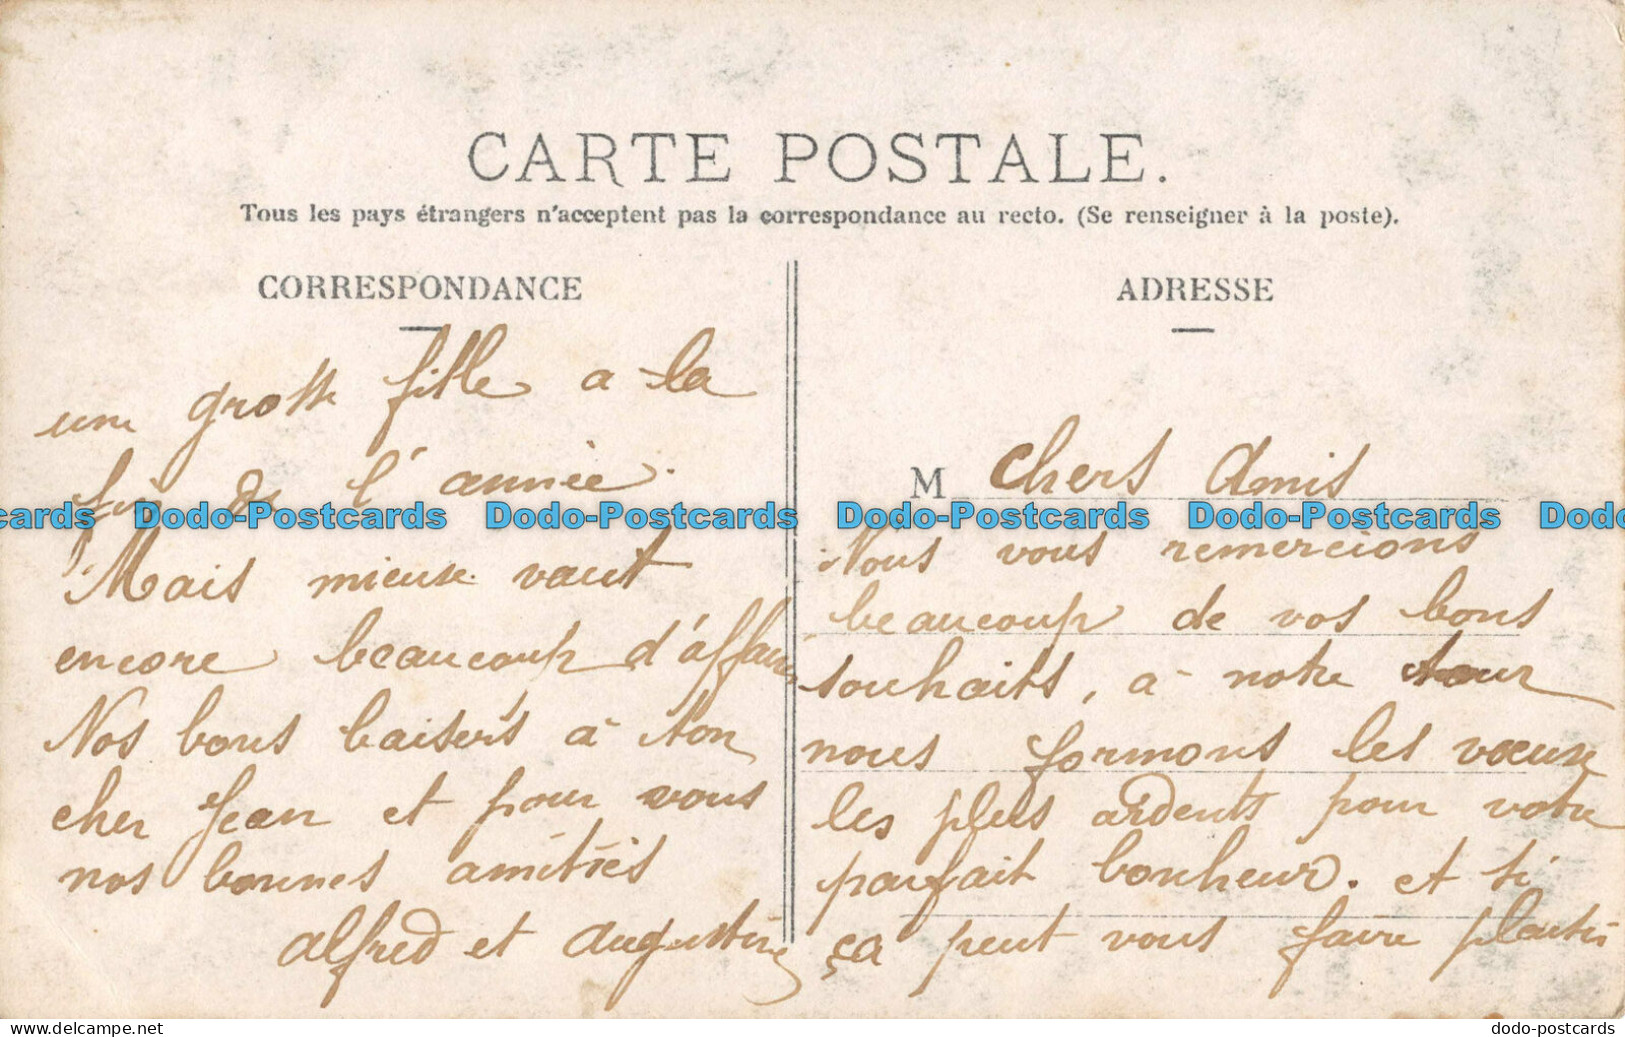 CARTE POSTALE.
Tous les pays étrangers n'acceptent pas la correspondance au recto. (Se renseigner à la poste).
CORRESPONDANCE
une grosse fille a la
fin de l'année.
Mais mieux vaut
encore beaucoup d'affaire
Nos bons baisers à ton
cher Jean et pour vous
nos bonnes amitiés
Alfred et Augustine
ADRESSE
M Chers Amis
Nous vous remercions
beaucoup de vos bons
souhaits, à notre tour
nous formons les voeux
les plus ardents pour votre
parfait bonheur. et si
ça peut vous faire plaisir
cards Dodo-Postcards Dodo-Postcards Dodo-Postcards Dodo-Postcards Dodo
delcampe.net
dodo-postcards